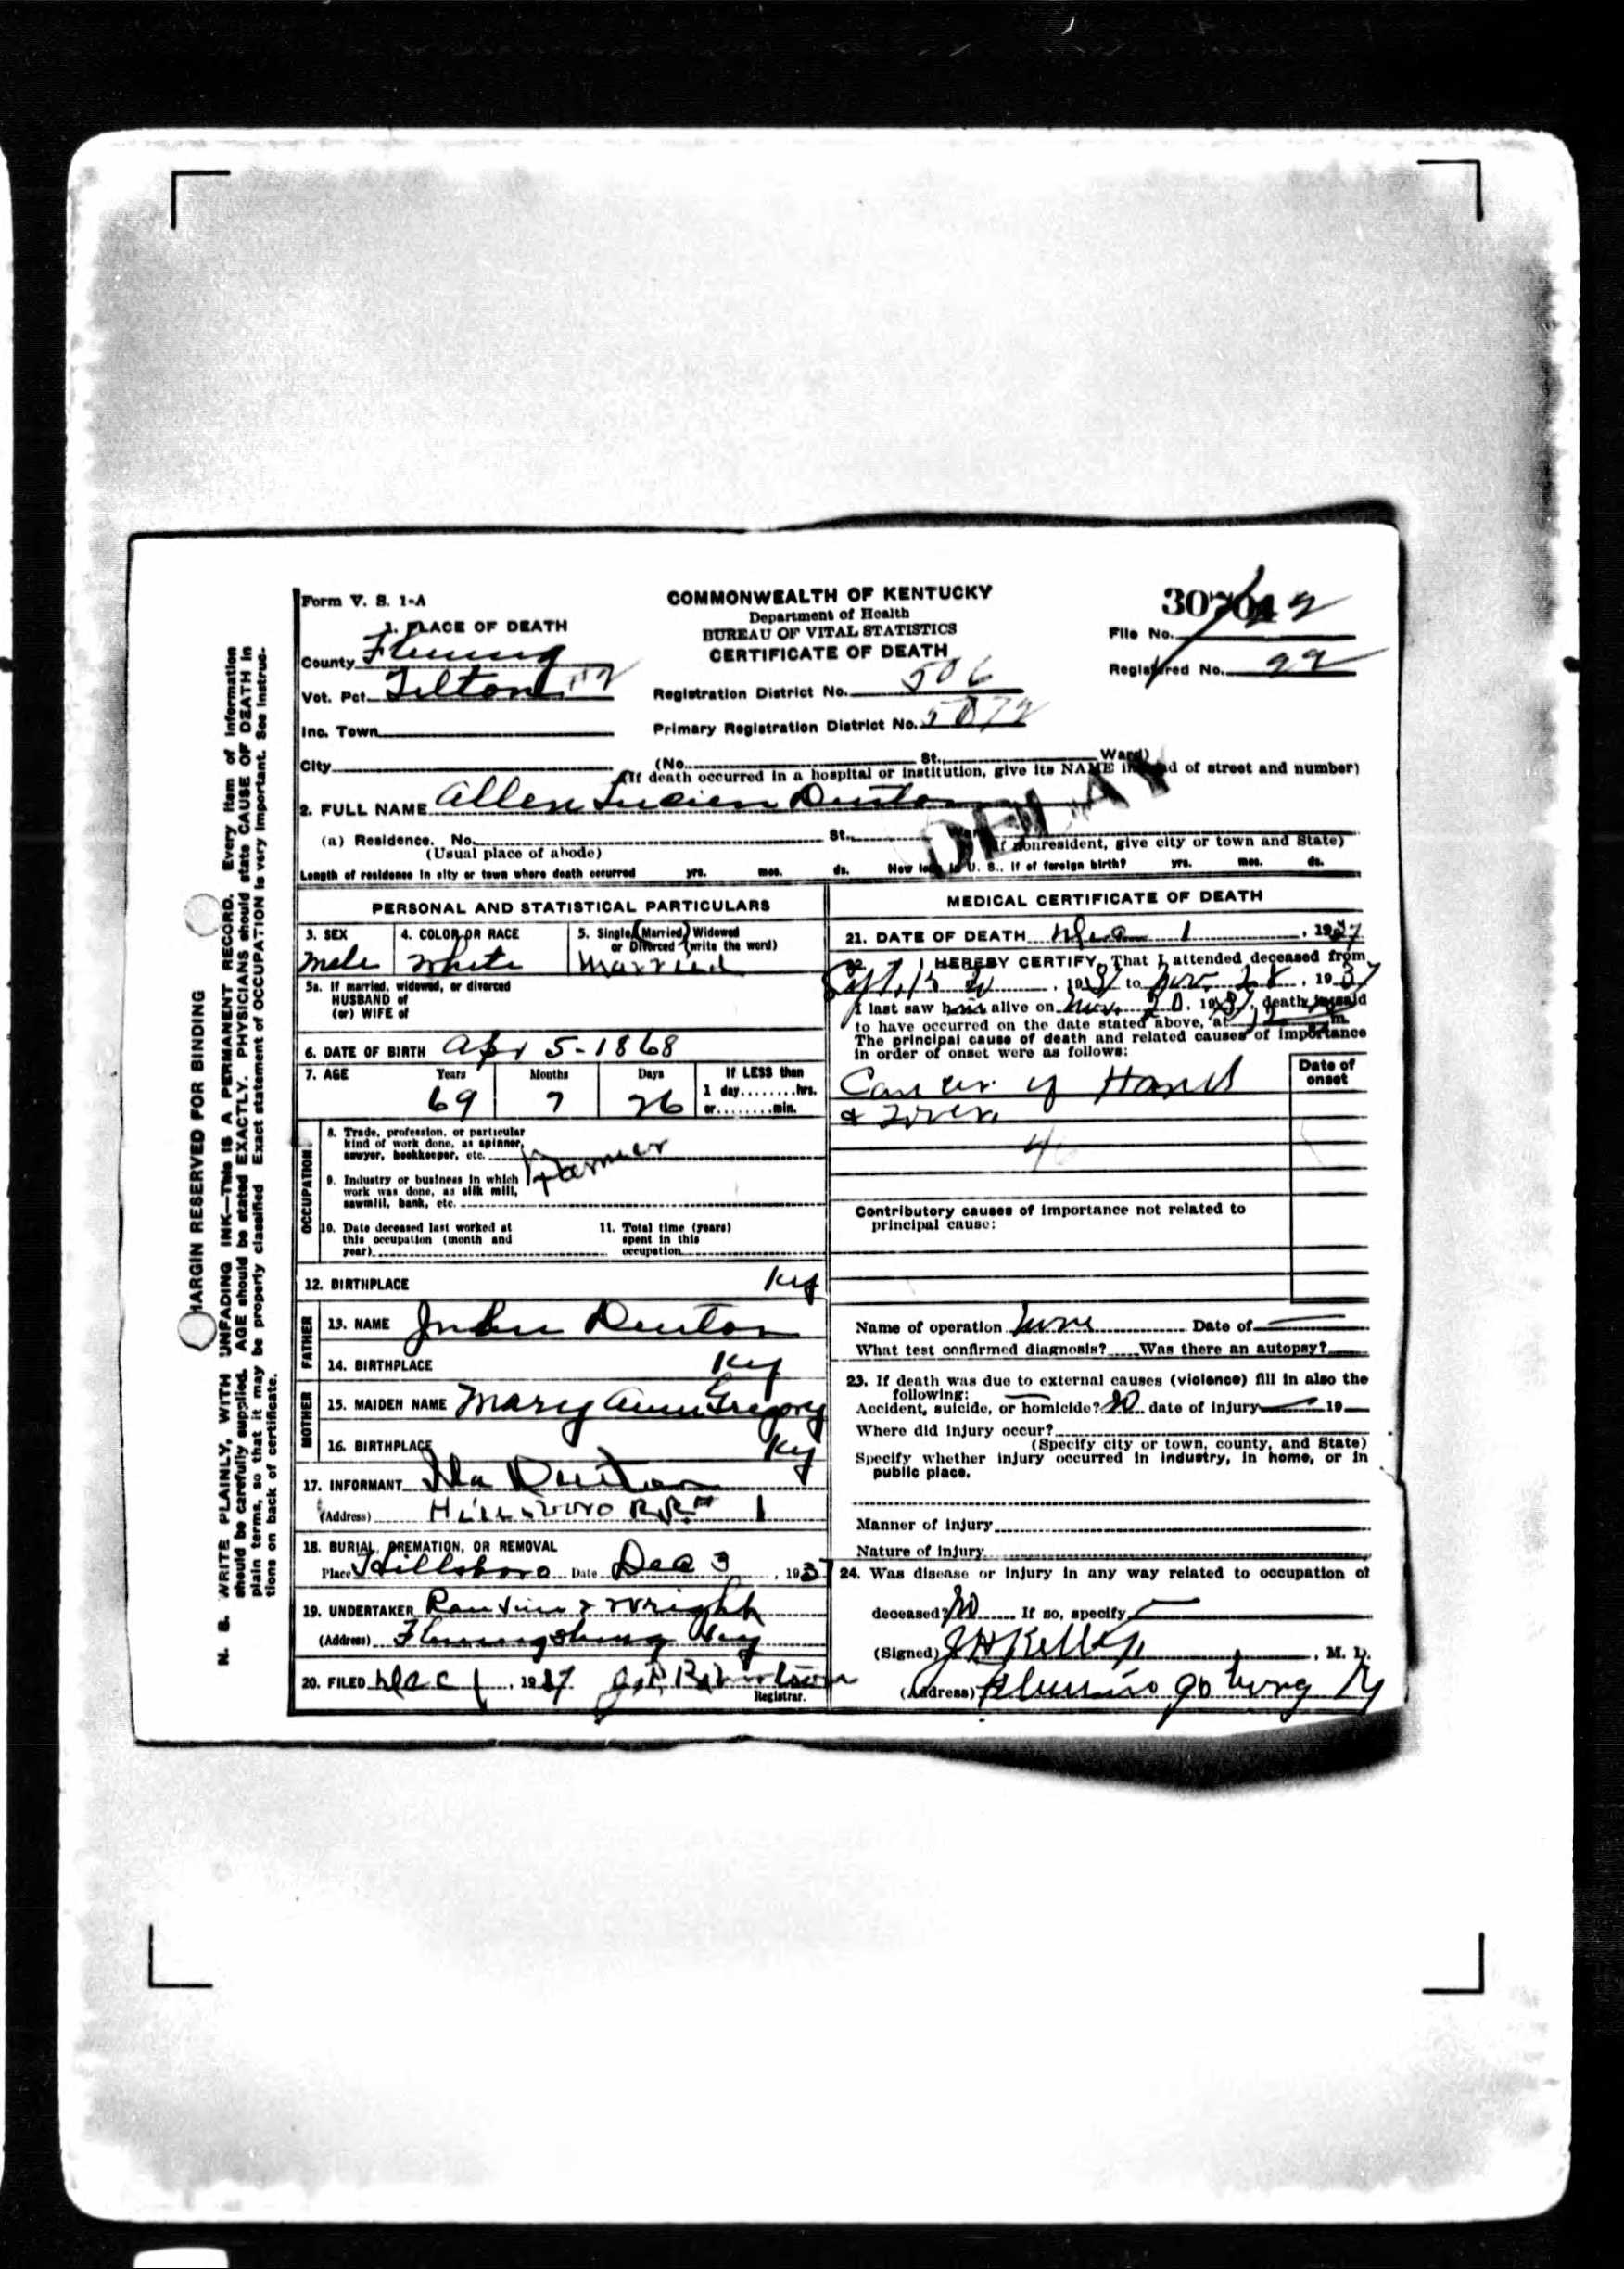 Form V. S. 1-A
COMMONWEALTH OF KENTUCKY
Department of Health
BUREAU OF VITAL STATISTICS
CERTIFICATE OF DEATH
File No.
Registered No. 92
1. PLACE OF DEATH
County Fleming
Vot. Pct. Tilton
Inc. Town
City
Registration District No. 506
Primary Registration District No. 5072
(No. St., Ward)
(If death occurred in a hospital or institution, give its NAME instead of street and number)
2. FULL NAME Allen Lucien Denton
DELAY
(a) Residence. No. St., Ward
(Usual place of abode) (If nonresident, give city or town and State)
Length of residence in city or town where death occurred yrs. mos. ds. How long in U. S., if of foreign birth? yrs. mos. ds.
PERSONAL AND STATISTICAL PARTICULARS
3. SEX 4. COLOR OR RACE 5. Single, Married, Widowed
or Divorced (write the word)
Male White Married
5a. If married, widowed, or divorced
HUSBAND of
(or) WIFE of
6. DATE OF BIRTH Apr 5-1868
7. AGE Years Months Days If LESS than
1 day hrs.
or min.
69 7 26
OCCUPATION
8. Trade, profession, or particular
kind of work done, as spinner,
sawyer, bookkeeper, etc. Farmer
9. Industry or business in which
work was done, as silk mill,
sawmill, bank, etc.
10. Date deceased last worked at
this occupation (month and
year)
11. Total time (years)
spent in this
occupation
12. BIRTHPLACE Ky
FATHER
13. NAME John Denton
14. BIRTHPLACE Ky
MOTHER
15. MAIDEN NAME Mary Ann Gregory
16. BIRTHPLACE Ky
17. INFORMANT Ila Denton
(Address) Hillsboro R.R# 1
18. BURIAL, CREMATION, OR REMOVAL
Place Hillsboro Date Dec 3, 1937
19. UNDERTAKER & Wright
(Address) Flemingsburg Ky
20. FILED Dec 1, 1937
Registrar.
MEDICAL CERTIFICATE OF DEATH
21. DATE OF DEATH Dec 1, 1937
22. I HEREBY CERTIFY, That I attended deceased from
, 1937 to Nov. 28, 1937
I last saw him alive on Nov. 20, 1937, death is said
to have occurred on the date stated above, at m.
The principal cause of death and related causes of importance
in order of onset were as follows:
Date of
onset
Cancer of Hand
& Liver
Contributory causes of importance not related to
principal cause:
Name of operation None Date of
What test confirmed diagnosis? Was there an autopsy?
23. If death was due to external causes (violence) fill in also the
following:
Accident, suicide, or homicide? No date of injury 19
Where did injury occur?
(Specify city or town, county, and State)
Specify whether injury occurred in industry, in home, or in
public place.
Manner of injury
Nature of injury
24. Was disease or injury in any way related to occupation of
deceased? No If so, specify
(Signed) , M. D.
(Address) Flemingsburg Ky
MARGIN RESERVED FOR BINDING
N. B. WRITE PLAINLY, WITH UNFADING INK—This IS A PERMANENT RECORD. Every item of information
should be carefully supplied. AGE should be stated EXACTLY. PHYSICIANS should state CAUSE OF DEATH in
plain terms, so that it may be properly classified. Exact statement of OCCUPATION is very important. See instruc-
tions on back of certificate.